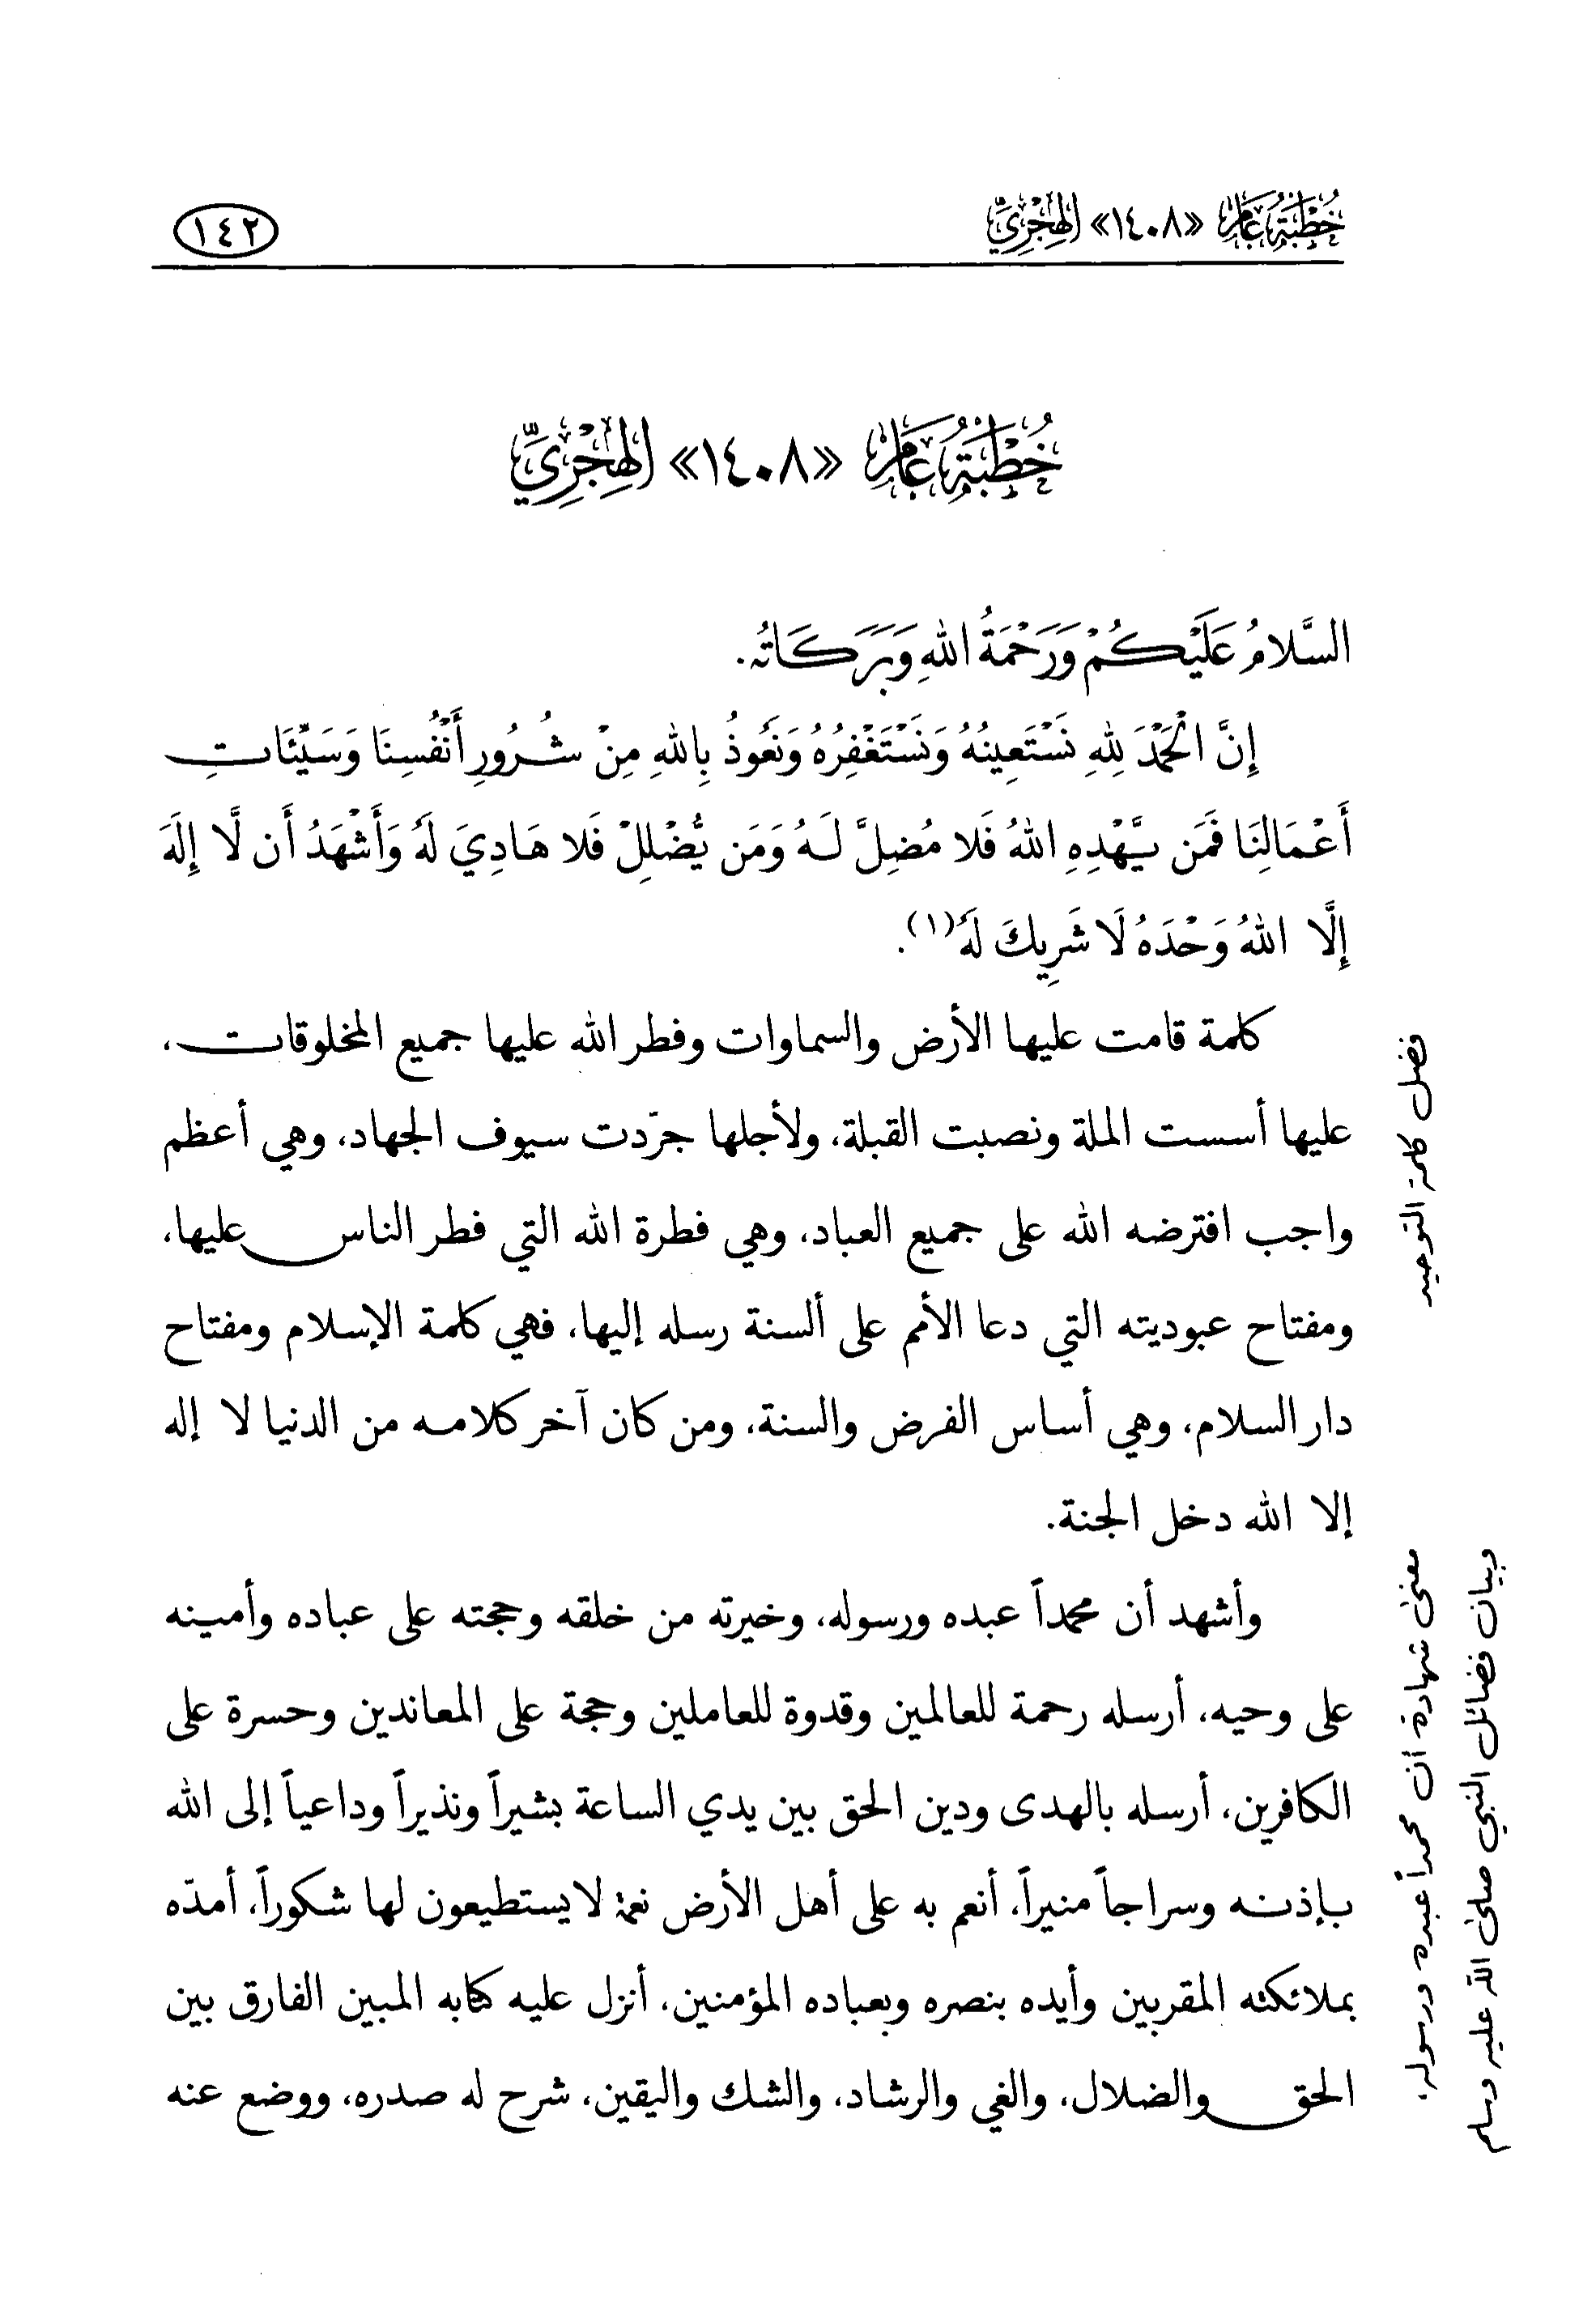 خُطْبَةُ عَامِ «١٤٠٨» الهِجْرِيِّ
١٤٢
خُطْبَةُ عَامِ «١٤٠٨» الهِجْرِيِّ
السَّلامُ عَلَيْكُمْ وَرَحْمَةُ اللهِ وَبَرَكَاتُه.
إِنَّ الْحَمْدَ لِلهِ نَسْتَعِينُهُ وَنَسْتَغْفِرُهُ وَنَعُوذُ بِاللهِ مِنْ شُرُورِ أَنْفُسِنَا وَسَيِّئَاتِ
أَعْمَالِنَا فَمَن يَّهْدِهِ اللهُ فَلا مُضِلَّ لَهُ وَمَن يُّضْلِلْ فَلا هَادِيَ لَهُ وَأَشْهَدُ أَن لَّا إِلَهَ
إِلَّا اللهُ وَحْدَهُ لَا شَرِيكَ لَهُ(١).
كلمة قامت عليها الأرض والسماوات وفطر الله عليها جميع المخلوقات،
عليها أسست الملة ونصبت القبلة، ولأجلها جرّدت سيوف الجهاد، وهي أعظم
واجب افترضه الله على جميع العباد، وهي فطرة الله التي فطر الناس عليها،
ومفتاح عبوديته التي دعا الأمم على ألسنة رسله إليها، فهي كلمة الإسلام ومفتاح
دار السلام، وهي أساس الفرض والسنة، ومن كان آخر كلامه من الدنيا لا إله
إلا الله دخل الجنة.
وأشهد أن محمداً عبده ورسوله، وخيرته من خلقه وحجته على عباده وأمينه
على وحيه، أرسله رحمة للعالمين وقدوة للعاملين وحجة على المعاندين وحسرة على
الكافرين، أرسله بالهدى ودين الحق بين يدي الساعة بشيراً ونذيراً وداعياً إلى الله
بإذنه وسراجاً منيراً، أنعم به على أهل الأرض نعمة لا يستطيعون لها شكوراً، أمدّه
بملائكته المقربين وأيده بنصره وبعباده المؤمنين، أنزل عليه كتابه المبين الفارق بين
الحق والضلال، والغي والرشاد، والشك واليقين، شرح له صدره، ووضع عنه
فضل كلمة التوحيد
معنى شهادة أن محمداً عبده ورسوله،
وبيان فضائل النبي صلى الله عليه وسلم